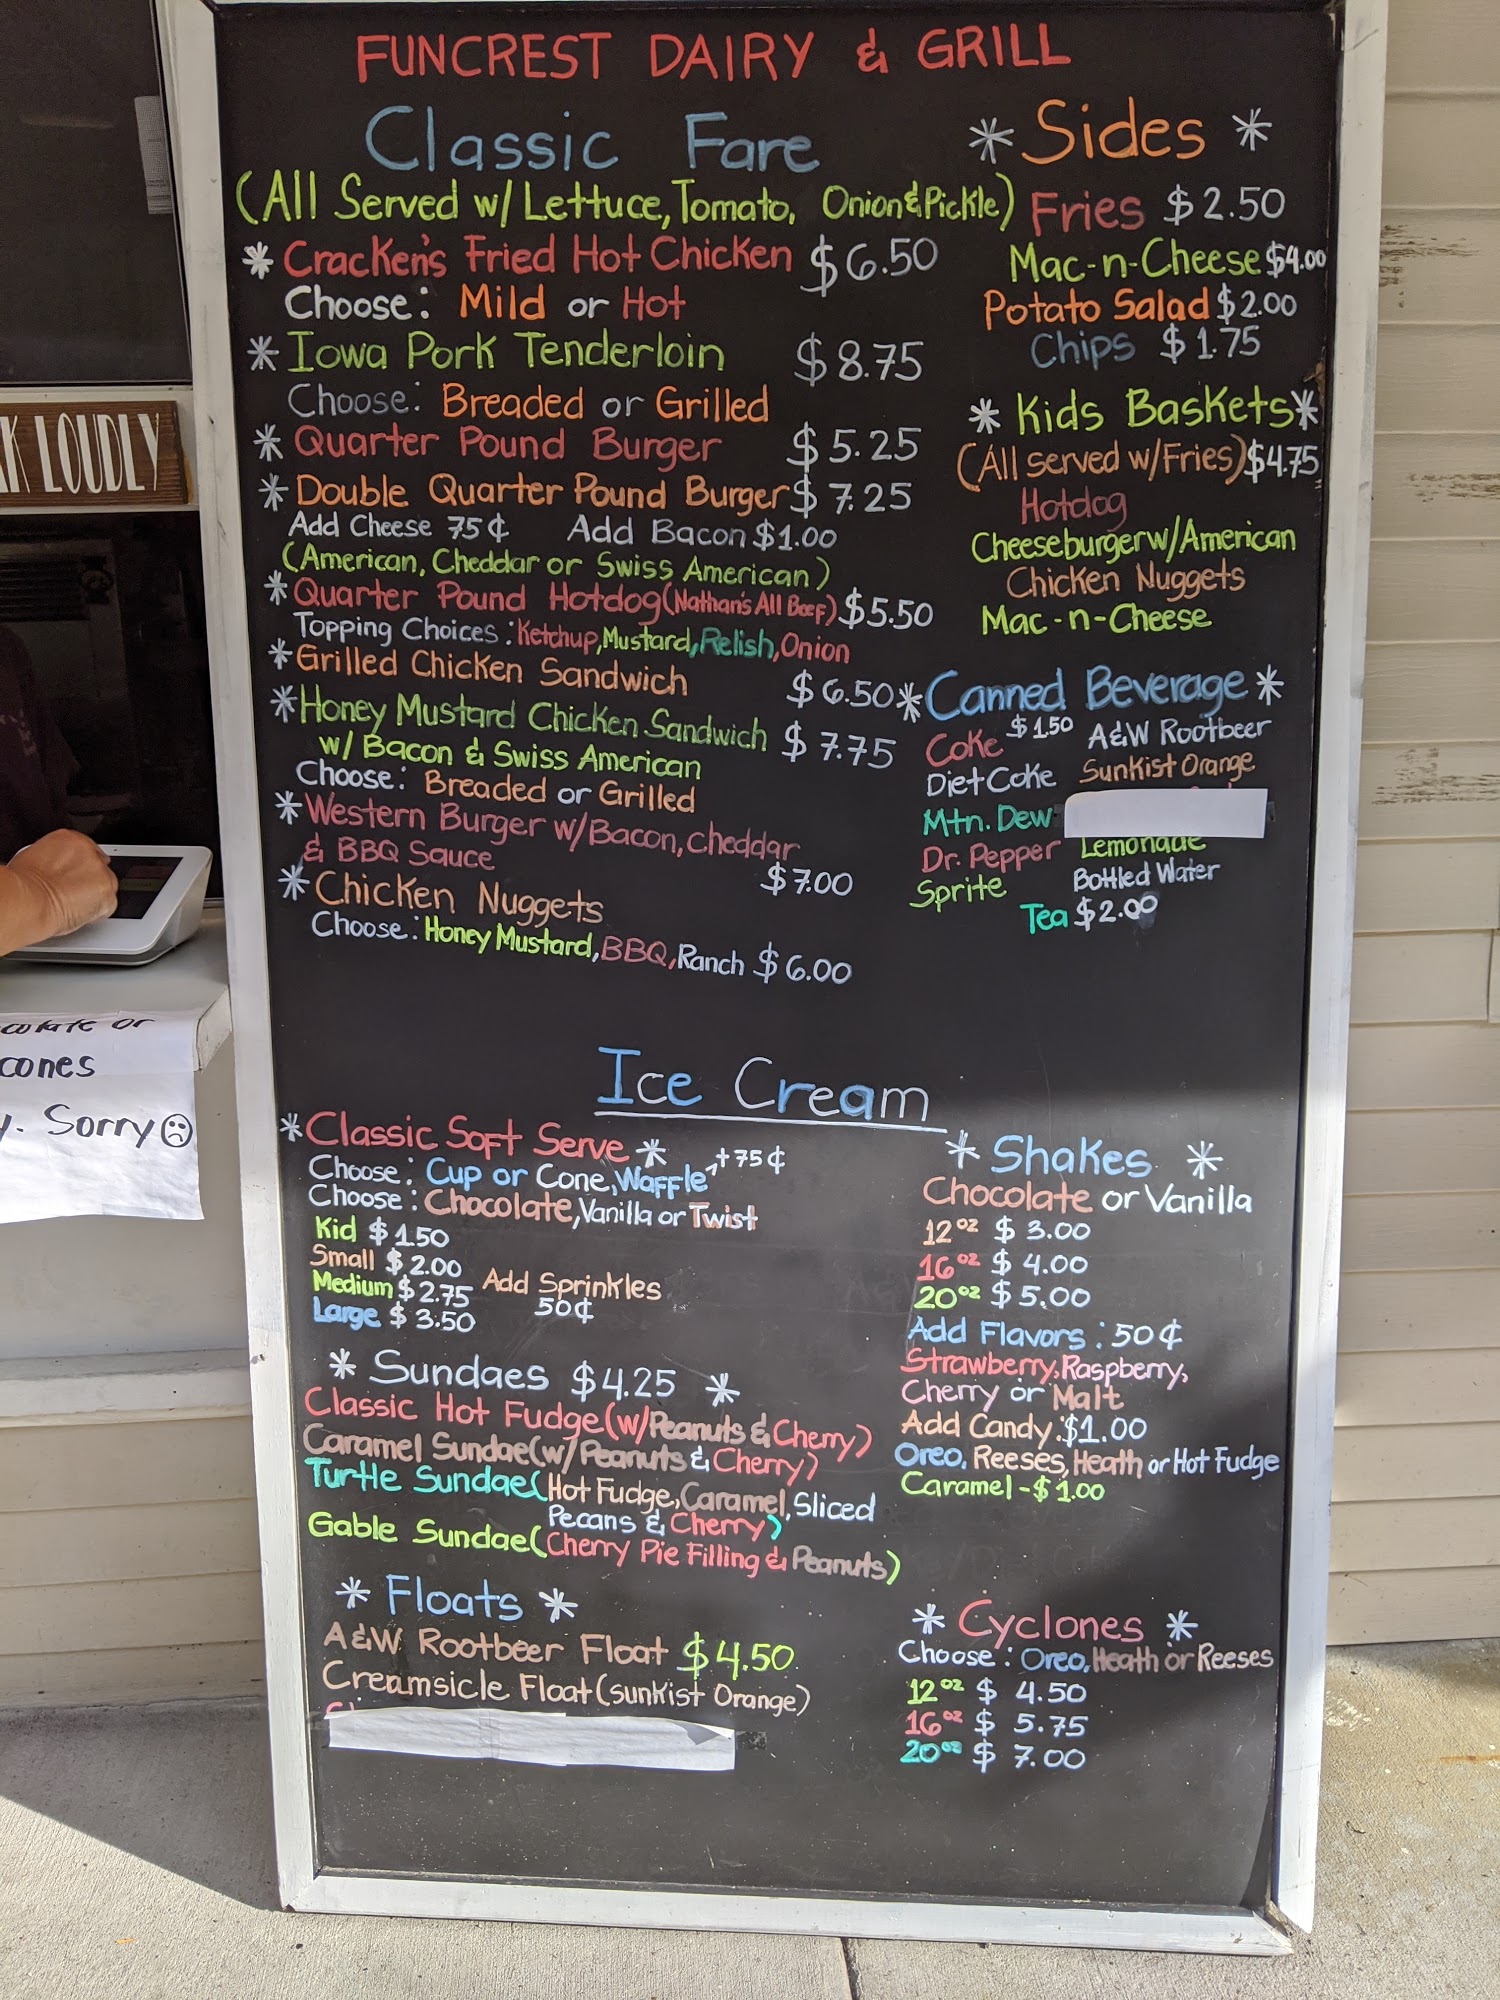 FUNCREST DAIRY & GRILL
Classic Fare
(All Served w/ Lettuce, Tomato, Onion & Pickle)
* Cracken's Fried Hot Chicken $6.50
Choose: Mild or Hot
* Iowa Pork Tenderloin $8.75
Choose: Breaded or Grilled
* Quarter Pound Burger $5.25
* Double Quarter Pound Burger $7.25
Add Cheese 75¢ Add Bacon $1.00
(American, Cheddar or Swiss American)
* Quarter Pound Hotdog (Nathan's All Beef) $5.50
Topping Choices: Ketchup, Mustard, Relish, Onion
* Grilled Chicken Sandwich $6.50
* Honey Mustard Chicken Sandwich $7.75
w/ Bacon & Swiss American
Choose: Breaded or Grilled
* Western Burger w/ Bacon, Cheddar
& BBQ Sauce $7.00
* Chicken Nuggets
Choose: Honey Mustard, BBQ, Ranch $6.00
* Sides *
Fries $2.50
Mac-n-Cheese $4.00
Potato Salad $2.00
Chips $1.75
* Kids Baskets *
(All served w/Fries) $4.75
Hotdog
Cheeseburger w/American
Chicken Nuggets
Mac-n-Cheese
* Canned Beverage *
$1.50
Coke A&W Rootbeer
Diet Coke Sunkist Orange
Mtn. Dew
Dr. Pepper Lemonade
Sprite Bottled Water
Tea $2.00
Ice Cream
* Classic Soft Serve *
Choose: Cup or Cone, Waffle +75¢
Choose: Chocolate, Vanilla or Twist
Kid $1.50
Small $2.00
Medium $2.75
Large $3.50
Add Sprinkles
50¢
* Sundaes $4.25 *
Classic Hot Fudge (w/Peanuts & Cherry)
Caramel Sundae (w/Peanuts & Cherry)
Turtle Sundae (Hot Fudge, Caramel, Sliced
Pecans & Cherry)
Gable Sundae (Cherry Pie Filling & Peanuts)
* Floats *
A&W Rootbeer Float $4.50
Creamsicle Float (Sunkist Orange)
* Shakes *
Chocolate or Vanilla
12oz $3.00
16oz $4.00
20oz $5.00
Add Flavors: 50¢
Strawberry, Raspberry,
Cherry or Malt
Add Candy: $1.00
Oreo, Reeses, Heath or Hot Fudge
Caramel - $1.00
* Cyclones *
Choose: Oreo, Heath or Reeses
12oz $4.50
16oz $5.75
20oz $7.00
LOUDLY
or
cones
Sorry